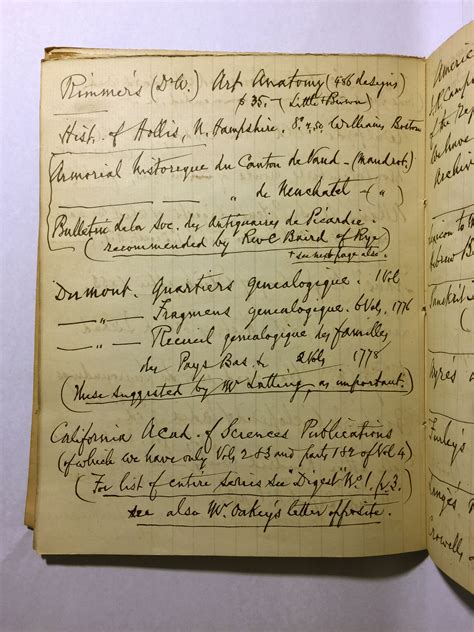 Rimmer's (Dr W.) Art Anatomy (986 designs)
$35. - (Little & Brown)
Hist. of Hollis, N. Hampshire, 8º 4.50 Williams Boston
Armorial historique du Canton de Vaud - (Mandrot.)
— — — " de Neuchatel - ( " )
Bulletin de la Soc. des Antiquaires de Picardie.
(recommended by Rev C Baird of Rye)
+ see next page also.
Dumont. Quartiers genealogique. 1 Vol
—"— Fragmens genealogique. 6 Vols, 1776
—"— Recueil genealogique des familles
des Pays Bas. & 2 Vols 1778
(These suggested by Mr Lutting, as important.)
California Acad. of Sciences Publications
(of which we have only Vols 2 & 3 and part 1 & 2 of Vol 4)
(For list of entire series see "Digest" No 1, p. 3.
see also Mr. Oakey's letter opposite.
Americ
of the Rep
We have
Archiv
Hebrew B
Sanskrit
Ayre's
Turley's
Ranges
Crowell's